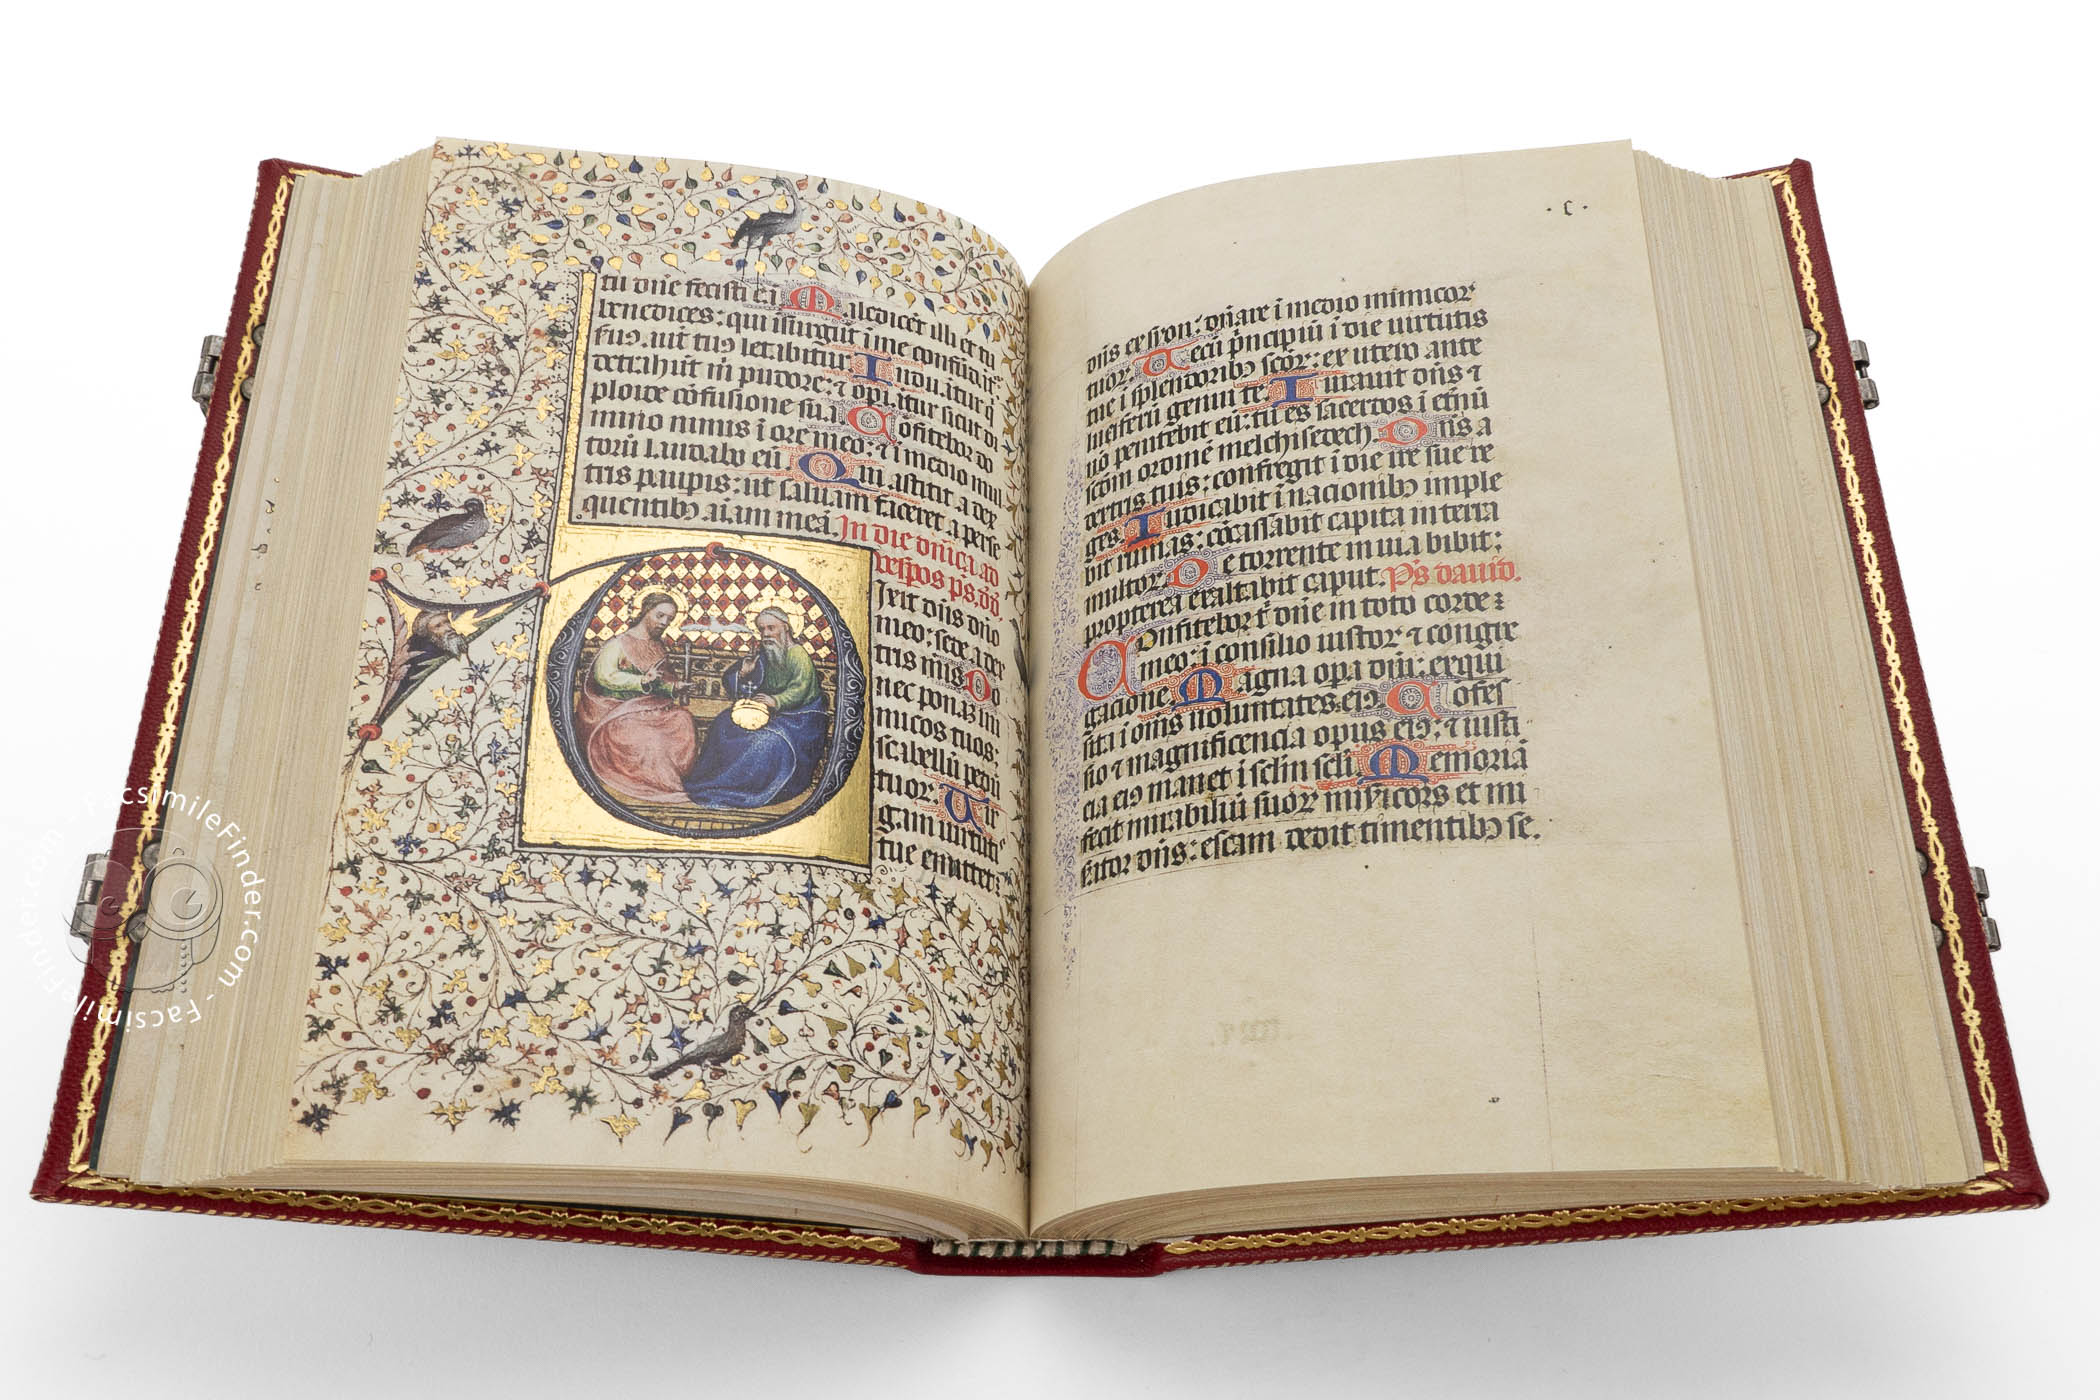 tu dn̄e fecisti eā Maledicēt illi et tu
benedices: qui īsurgūt ī me confūdāt᷑
suꝰ aūt tuꝰ letabitur Induātur q̄
detrahūt m̄ pudore: ⁊ opiātur sicut di
ploide cōfusione suā Cōfitebor do
mino nimis ī ore meo: ⁊ ī medio mul
torū laudabo eū Qui astitit a dex
tris paupis: ut saluam faceret a perse
quentibꝫ aīam meā. In die dn̄ica ad
vesp̄os p̄s. dd̄
Dixit dn̄s dn̄o
meo: sede a dex
tris mīs Do
nec ponaꝫ ini
micos tuos:
scabellū pedū
tuor. Uir
gam uirtutis
tue emittet:
· c ·
dn̄s ex syon: dn̄are ī medio inimicor
tuor. Tecū p̄ncipiū ī die uirtutis
tue ī splendoribꝫ scōr: ex utero ante
luciferū genui te. Iurauit dn̄s ⁊
nō penitebit eū: tu es sacerdos ī etn̄ū
scdm ordinē melchisedech. Dn̄s a
dextris tuis: confregit ī die ire sue re
ges. Iudicabit ī nacionibꝫ imple
bit ruinas: cōq̄ssabit capita in terra
multor. De torrente in uia bibit:
propterea exaltabit caput. P̄s dauid.
Confitebor t̄ dn̄e in toto corde:
meo: ī consilio iustor ⁊ congre
gacione. Magna opa dn̄i: exqui
sita ī om̄s uoluntates eiꝰ. Cōfes
sio ⁊ magnificencia opus eiꝰ: ⁊ iusti-
cia eiꝰ manet ī sclm scli. Memoriā
fecit mirabiliū suor misicors et mi
sator dn̄s: escam dedit timentibꝫ se.
FacsimileFinder.com - FacsimileFinder.com -